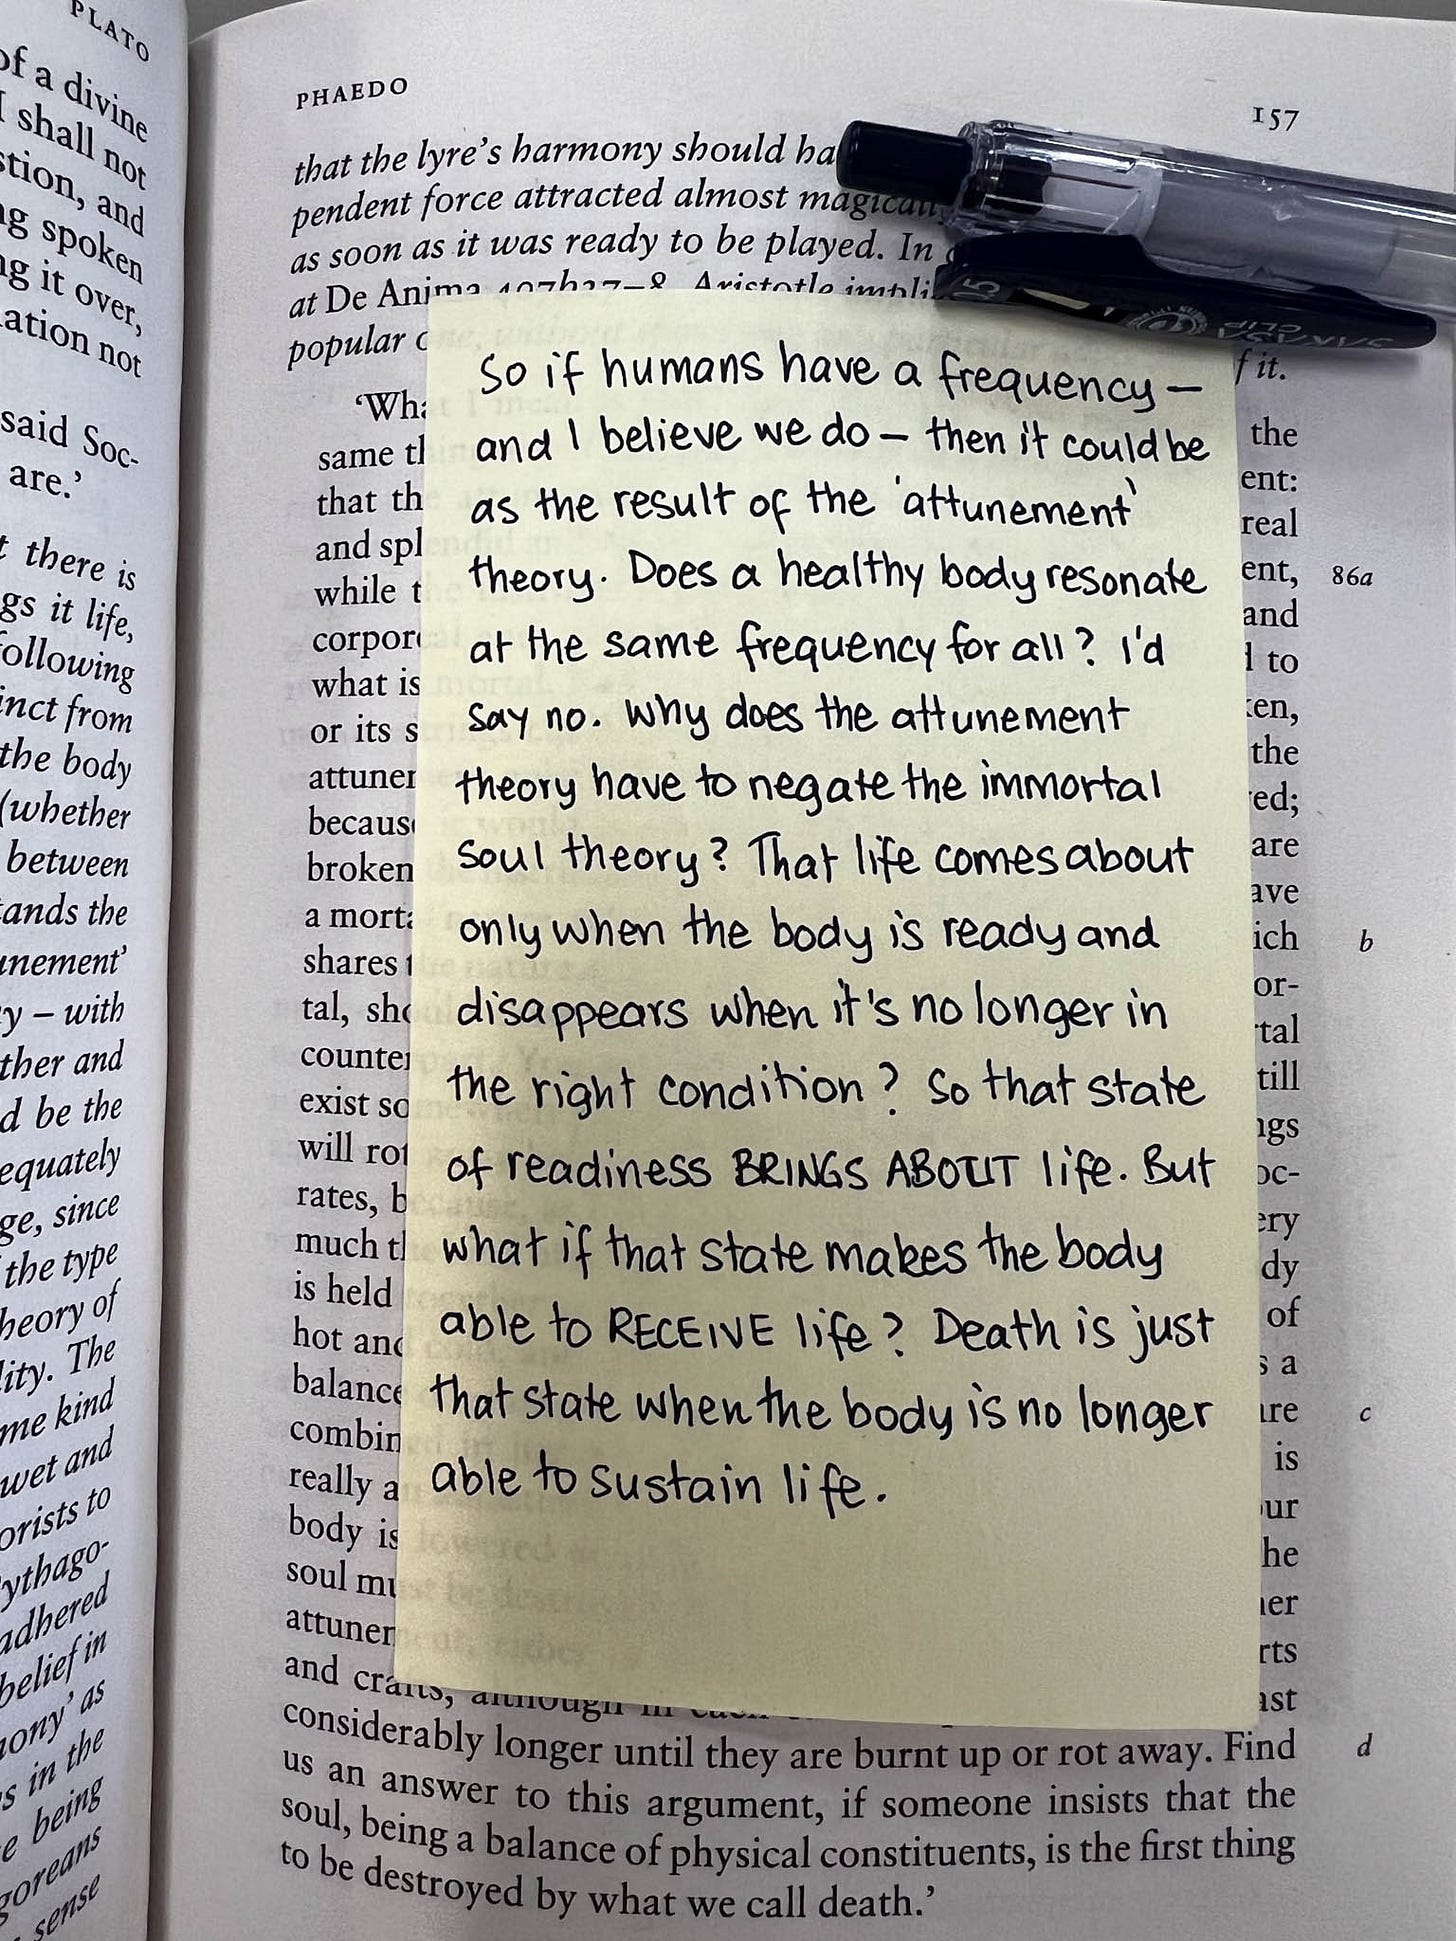 PLATO
of a divine
I shall not
stion, and
ng spoken
ng it over,
ation not
said Soc-
are.'
t there is
gs it life,
following
inct from
the body
(whether
between
tands the
unement'
y – with
ther and
d be the
equately
ge, since
the type
heory of
lity. The
me kind
wet and
orists to
ythago-
adhered
belief in
ony' as
s in the
e being
goreans
sense
PHAEDO
157
that the lyre's harmony should ha
pendent force attracted almost magically
as soon as it was ready to be played. In
at De Anima 407b27–8, Aristotle impli
popular
f it.
So if humans have a frequency –
and I believe we do – then it could be
as the result of the 'attunement'
theory. Does a healthy body resonate
at the same frequency for all? I'd
say no. Why does the attunement
theory have to negate the immortal
soul theory? That life comes about
only when the body is ready and
disappears when it's no longer in
the right condition? So that state
of readiness BRINGS ABOUT life. But
what if that state makes the body
able to RECEIVE life? Death is just
that state when the body is no longer
able to sustain life.
'Wha
same th
that th
and spl
while t
corpor
what is
or its s
attuner
becaus
broken
a morta
shares
tal, sho
counter
exist so
will rot
rates, b
much th
is held
hot and
balance
combin
really a
body is
soul mu
attunem
and crafts, although in each
the
ent:
real
ent,
86a
and
l to
ken,
the
ed;
are
ave
ich
b
or-
tal
till
ngs
oc-
ery
dy
of
s a
are
c
is
our
he
her
rts
ast
considerably longer until they are burnt up or rot away. Find
d
us an answer to this argument, if someone insists that the
soul, being a balance of physical constituents, is the first thing
to be destroyed by what we call death.'
SAKASA
CLIP